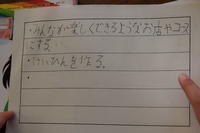 ・みんなが楽しくできるようなお店やコース
にする
・けいひんを作る。
・